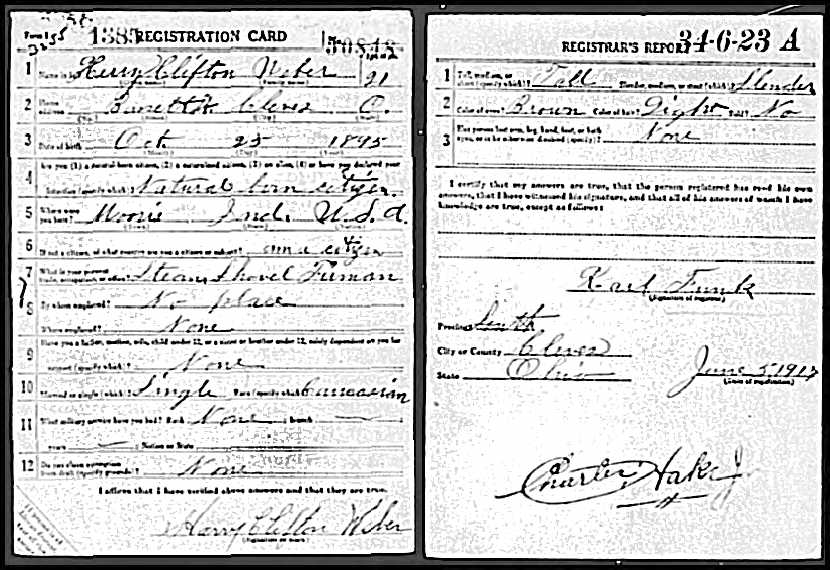 Form 1
1385 REGISTRATION CARD No. 50848
1 Name in full Harry Clifton Weber 21
2 Home address Cleves O.
3 Date of birth Oct. 25 1895
4 Are you (1) a natural-born citizen, (2) a naturalized citizen, (3) an alien, (4) or have you declared your
intention (specify which)? Natural born citizen
5 Where were you born? Moores Ind. U.S.A.
6 If not a citizen, of what country are you a citizen or subject? am a citizen
7 What is your present trade, occupation, or office? Steam Shovel Fireman
8 By whom employed? No place
Where employed? None
9 Have you a father, mother, wife, child under 12, or a sister or brother under 12, solely dependent on you for
support (specify which)? None
10 Married or single (which)? Single Race (specify which)? Caucasian
11 What military service have you had? Rank None ; branch
years ; Nation or State
12 Do you claim exemption from draft (specify grounds)? None
I affirm that I have verified above answers and that they are true.
Harry Clifton Weber
(Signature or mark)
REGISTRAR'S REPORT 34-6-23 A
1 Tall, medium, or short (specify which)? Tall Slender, medium, or stout (which)? Slender
2 Color of eyes? Brown Color of hair? Light Bald? No
3 Has person lost arm, leg, hand, foot, or both eyes, or is he otherwise disabled (specify)? None
I certify that my answers are true, that the person registered has read his own
answers, that I have witnessed his signature, and that all of his answers of which I have
knowledge are true, except as follows:
Karl Funk
(Signature of registrar)
Precinct South
City or County Cleves
State Ohio June 5, 1917
(Date of registration)